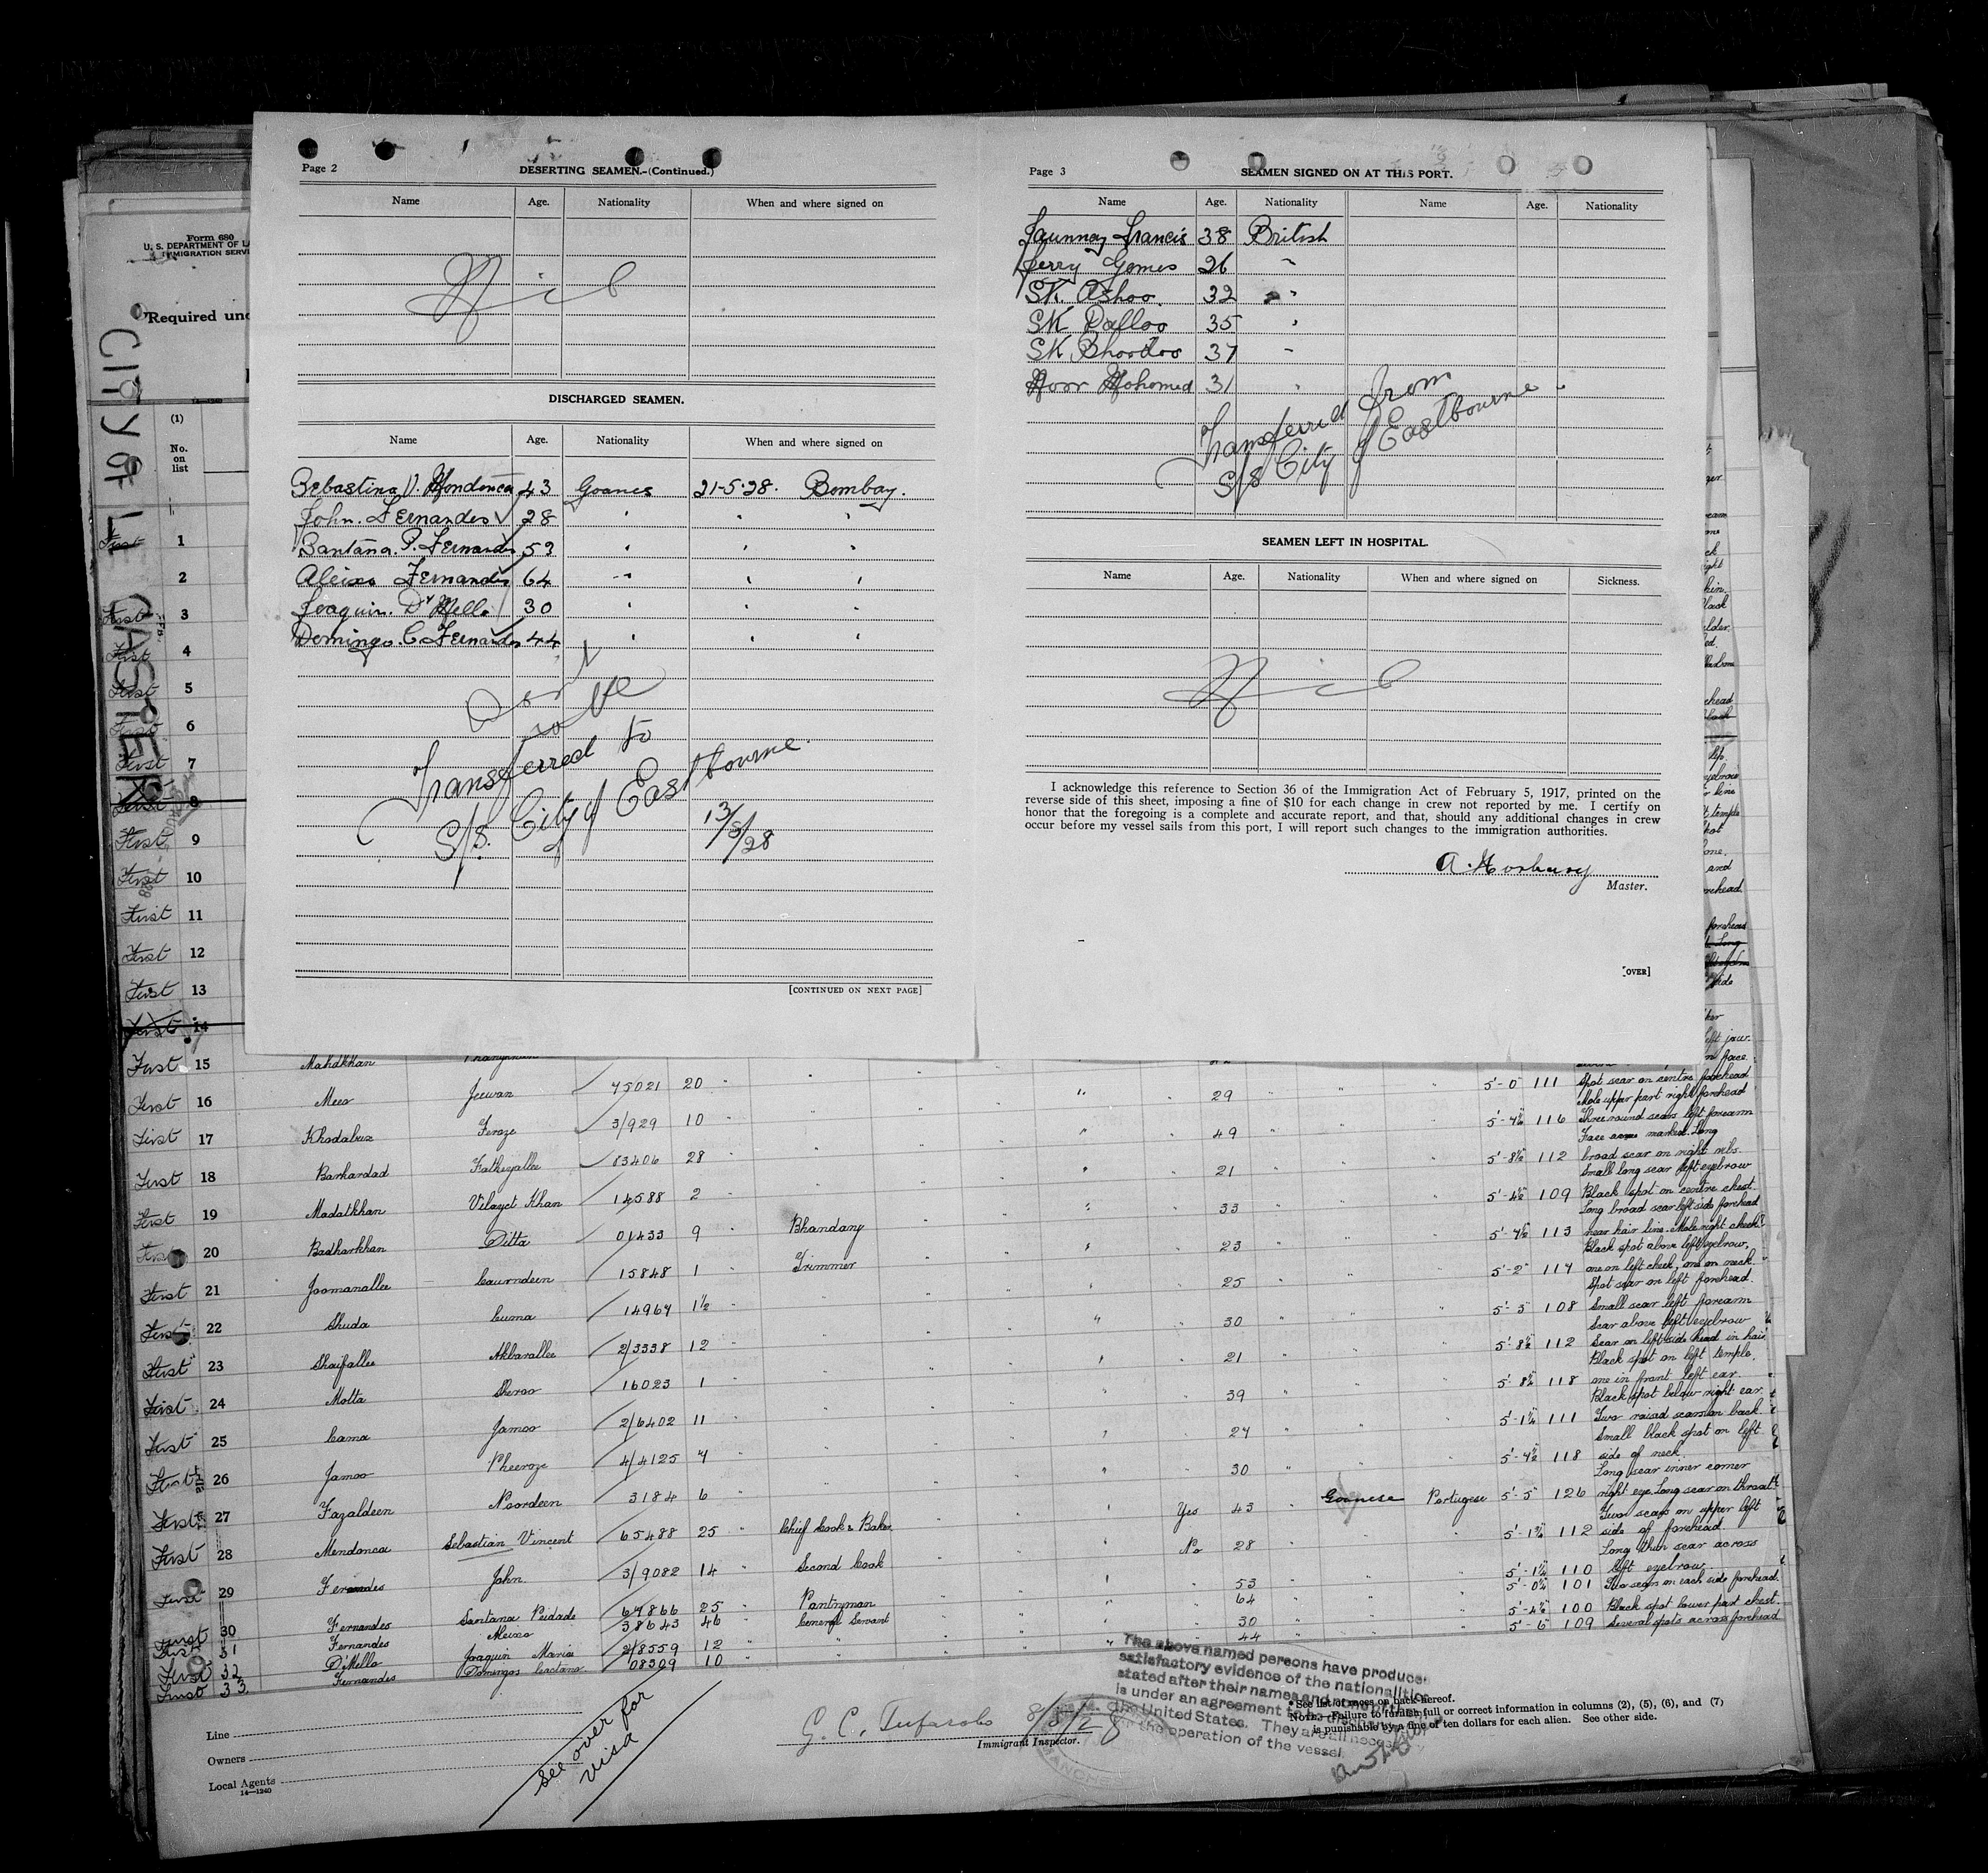 Page 2
DESERTING SEAMEN.-(Continued.)
Name Age. Nationality When and where signed on
Nil
DISCHARGED SEAMEN.
Name Age. Nationality When and where signed on
Sebastina V. Mendonca 43 Goanes 21-5-28. Bombay.
John. Fernandes 28 " " "
Santana. P. Fernandes 53 " " "
Aleixo Fernandes 64 " " "
Joaquin. D'Mello 30 " " "
Domingo. C. Fernandes 44 " " "
Transferred to
S/S. City of Eastbourne.
13/8/28
[CONTINUED ON NEXT PAGE]
Page 3
SEAMEN SIGNED ON AT THIS PORT.
Name Age. Nationality Name Age. Nationality
Francis 38 British
Jerry Gomes 26 "
SK. Ashoo. 32 "
SK Dalloo 35 "
SK Bhoodoo 37 "
Noor Mohomed 31 "
Transferred from
S/S City of Eastbourne
SEAMEN LEFT IN HOSPITAL.
Name Age. Nationality When and where signed on Sickness.
Nil
I acknowledge this reference to Section 36 of the Immigration Act of February 5, 1917, printed on the
reverse side of this sheet, imposing a fine of $10 for each change in crew not reported by me. I certify on
honor that the foregoing is a complete and accurate report, and that, should any additional changes in crew
occur before my vessel sails from this port, I will report such changes to the immigration authorities.
Master.
[OVER]
Form 680
U. S. DEPARTMENT OF
IMMIGRATION
Required
CITY OF
(1)
No.
on
list
First 1
2
First 3
First 4
First 5
First 6
First 7
First 8
First 9
First 10
First 11
First 12
First 13
First 14
First 15 Mahdkhan
First 16 Meer Jeewan 45021 20 " 29 5'-0" 111 Spot scar on centre forehead
Mole upper part right forehead
First 17 Khodabux Feroze 3/929 10 49 5'-4½ 116 Three round scars left forearm
Face marked. Long
First 18 Barkardad Fatheyallee 83406 28 21 5'-8½ 112 broad scar on right ribs.
Small long scar left eyebrow
First 19 Madatkhan Vilayet Khan 14588 2 33 5'-4½ 109 Black spot on centre chest.
Long broad scar left side forehead
First 20 Badharkhan Ditta 01433 9 Bhandary 23 5'-4½ 113 near hair line. Mole right cheek
Black spot above left eyebrow,
First 21 Joomanallee Caurndeen 15848 1 Trimmer 25 5'-2" 114 one on left cheek, one on neck.
Spot scar on left forehead.
First 22 Shuda Cuma 14964 1½ 30 5'-3" 108 Small scar left forearm
Scar above left eyebrow
First 23 Shaifallee Akbarallee 2/3338 12 21 5'-8½ 112 Scar on left side head in hair
Black spot on left temple.
First 24 Motta Sheroo 16023 1 39 5'-8½ 118 one in front left ear.
Black spot below right ear.
First 25 Cama Jamoo 2/6402 11 24 5'-1½ 111 Two raised scars on back.
Small black spot on left
First 26 Jamoo Pheeroze 4/4125 4 30 5'-4½ 118 side of neck
Long scar inner corner
First 27 Fazaldeen Noordeen 3184 6 Yes 43 Goanese Portugese 5'-5" 126 right eye. Long scar on throat
Two scars on upper left
First 28 Mendonca Sebastian Vincent 65488 25 " Chief Cook & Baker No 28 5'-1¾ 112 side of forehead.
Long thin scar across
First 29 Fernandes John 3/9082 14 " Second Cook 53 5'-1¼ 110 left eyebrow
64 5'-0¼ 101 Two scars on each side forehead
First 30 Fernandes Santana Piedade 64866 25 " Pantryman 30 5'-4½ 100 Black spot lower part chest.
First 31 Fernandes Aleixo 38643 46 " General Servant 44 5'-6" 109 Several spots across forehead
First 32 D'Mello Joaquin Maria 2/8559 12 "
First 33 Fernandes Domingos Caetano 08309 10 "
Line
Owners
Local Agents
14-1240
See over for
visa
8/8/28
Immigrant Inspector.
The above named persons have produced
satisfactory evidence of the nationalities
stated after their names and
is under an agreement to
the United States. They are all necessary
for the operation of the vessel.
* See list of races on back hereof.
NOTE.-Failure to furnish full or correct information in columns (2), (5), (6), and (7)
is punishable by a fine of ten dollars for each alien. See other side.